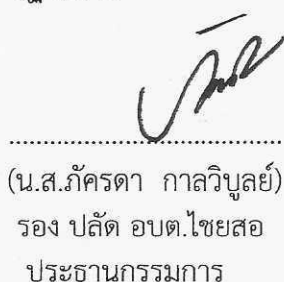 (น.ส.ภัครดา กาลวิบูลย์)
รอง ปลัด อบต.ไชยสอ
ประธานกรรมการ